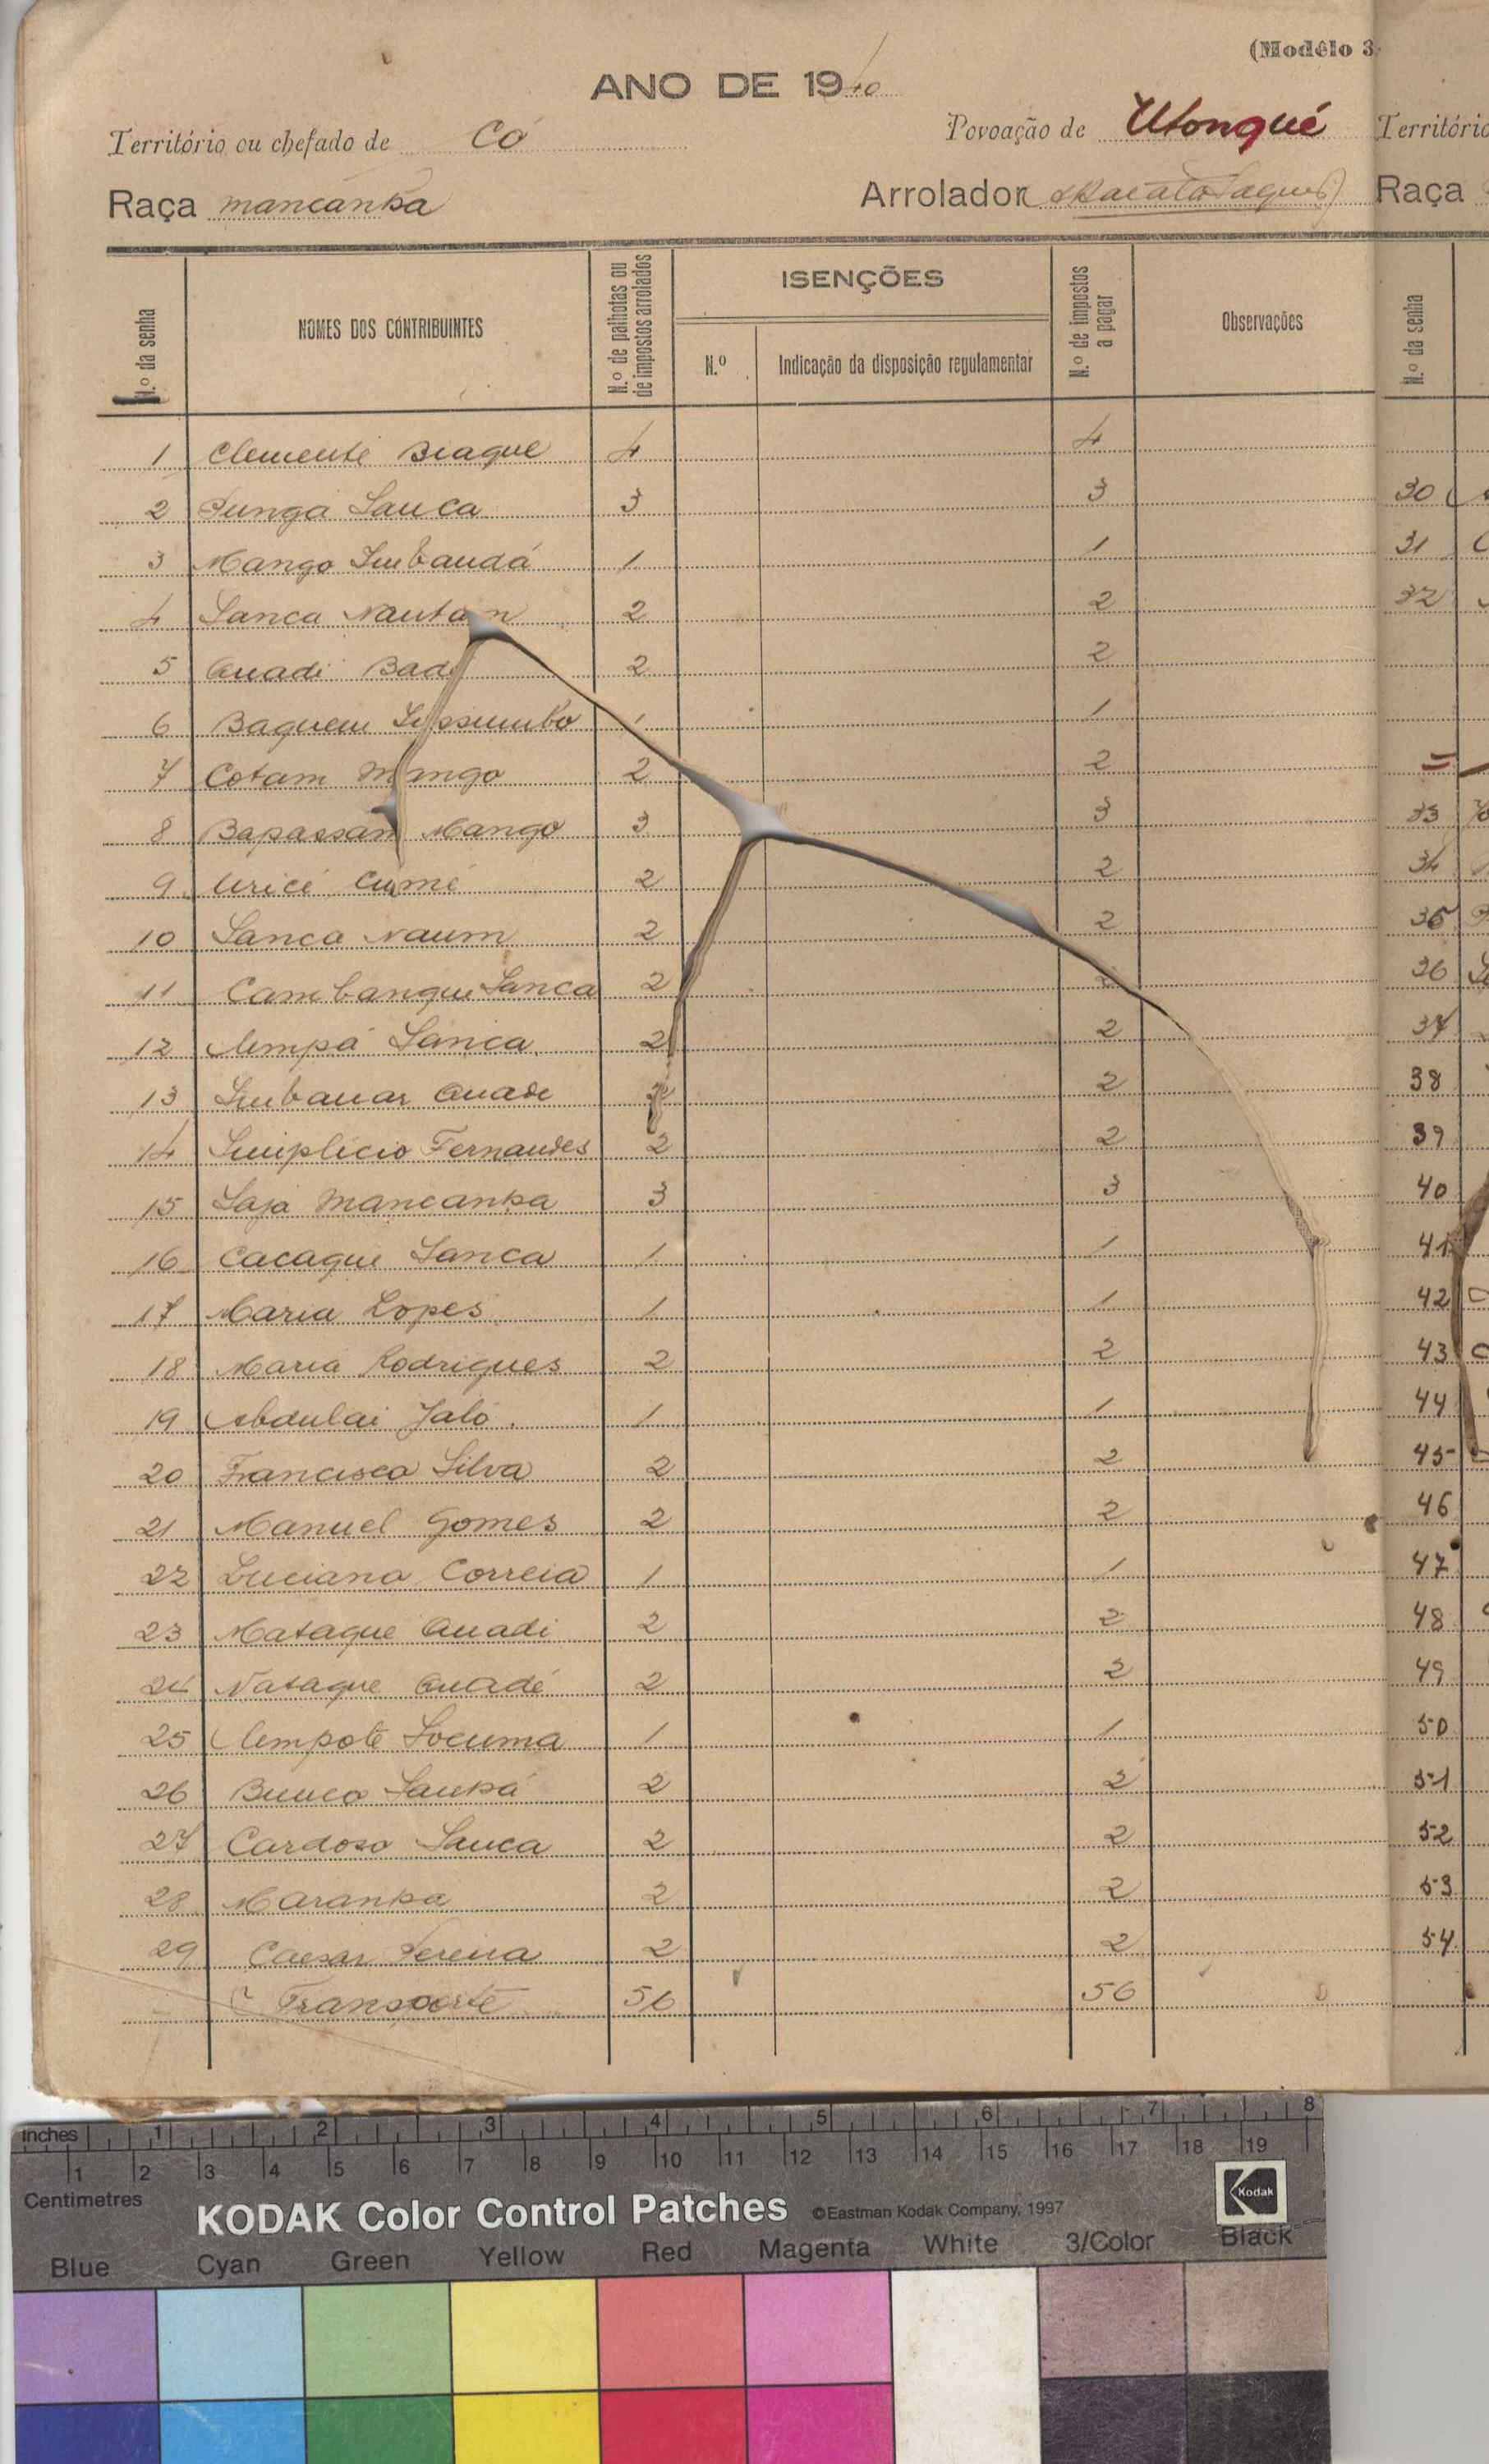 (Modêlo 3
ANO DE 1940
Território ou chefado de Có Povoação de Utonqué
Raça mancanha Arrolador
N.º da senha
NOMES DOS CONTRIBUINTES
N.º de palhotas ou de impostos arrolados
ISENÇÕES
N.º
Indicação da disposição regulamentar
N.º de impostos a pagar
Observações
1 Clemente Biague 4 4
2 Sanca 3 3
3 Mango Imbaudá 1 1
4 Sanca Nautam 2 2
5 Quadi Badi 2 2
6 Baquem 1 1
7 Cotam Mango 2 2
8 Bapassam Mango 3 3
9 Uricé Cumé 2 2
10 Sanca Naum 2 2
11 Cambanque Sanca 2 2
12 Sanca 2 2
13 Quade 2 2
14 Simplicio Fernandes 2 2
15 Saja Mancanha 3 3
16 Cacaque Sanca 1 1
17 Maria Lopes 1 1
18 Maria Rodrigues 2 2
19 Abdulai Jaló 1 1
20 Francisco Silva 2 2
21 Manuel Gomes 2 2
22 Luciano Correia 1 1
23 Mataque Quadi 2 2
24 Nataque Quadé 2 2
25 Socuma 1 1
26 2 2
27 Cardoso Sanca 2 2
28 Maranha 2 2
29 Caesar Pereira 2 2
Transporte 56 56
Território
Raça
N.º da senha
30
31
32
33
34
35
36
37
38
39
40
41
42
43
44
45
46
47
48
49
50
51
52
53
54
inches 1 2 3 4 5 6 7 8
1 2 3 4 5 6 7 8 9 10 11 12 13 14 15 16 17 18 19
Centimetres
KODAK Color Control Patches ©Eastman Kodak Company, 1997 Kodak
Blue Cyan Green Yellow Red Magenta White 3/Color Black